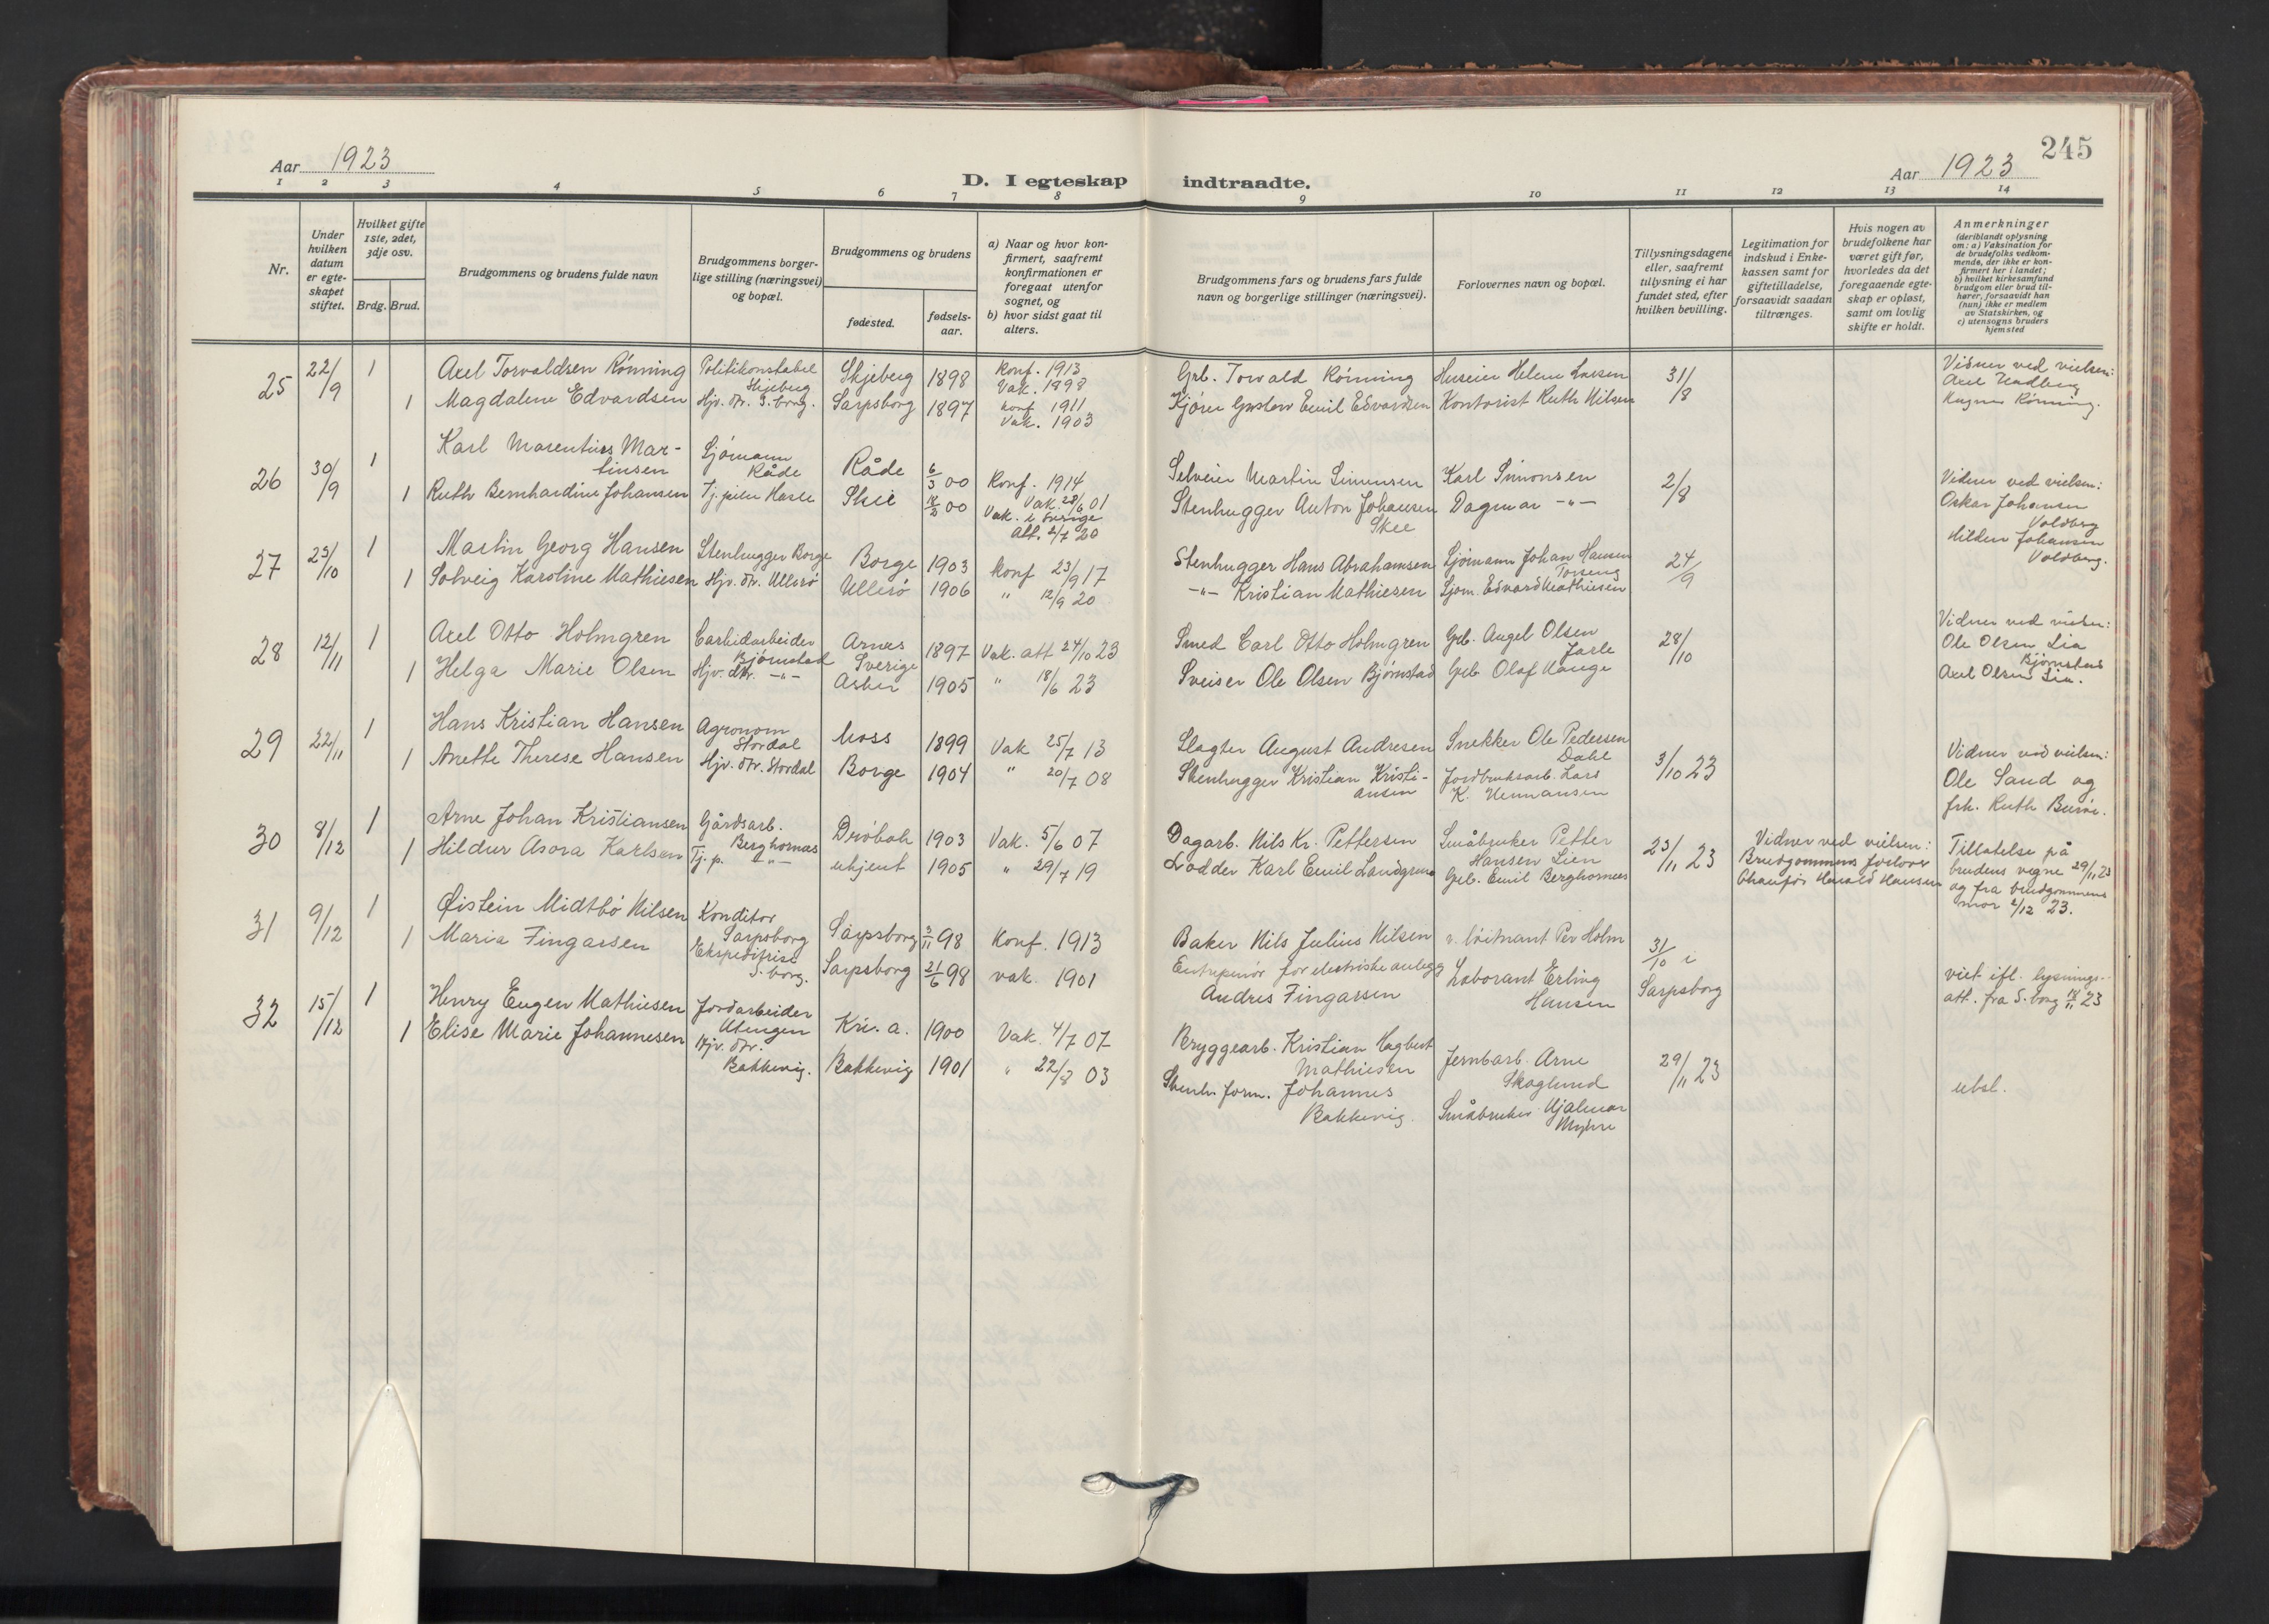 Aar 1923
D. I egteskap indtraadte.
Aar 1923
245
1 2 3 4 5 6 7 8 9 10 11 12 13 14
Nr.
Under hvilken datum er egteskapet stiftet.
Hvilket gifte 1ste, 2det, 3dje osv.
Brdg. Brud.
Brudgommens og brudens fulde navn
Brudgommens borgerlige stilling (næringsvei) og bopæl.
Brudgommens og brudens
fødested.
fødselsaar.
a) Naar og hvor konfirmert, saafremt konfirmationen er foregaat utenfor sognet, og
b) hvor sidst gaat til alters.
Brudgommens fars og brudens fars fulde navn og borgerlige stillinger (næringsvei).
Forlovernes navn og bopæl.
Tillysningsdagene eller, saafremt tillysning ei har fundet sted, efter hvilken bevilling.
Legitimation for indskud i Enkekassen samt for giftetilladelse, forsaavidt saadan tiltrænges.
Hvis nogen av brudefolkene har været gift før, hvorledes da det foregaaende egteskap er opløst, samt om lovlig skifte er holdt.
Anmerkninger
(deriblandt oplysning om: a) Vaksination for de brudefolks vedkommende, der ikke er konfirmert her i landet; b) hvilket kirkesamfund brudgom eller brud tilhører, forsaavidt han (hun) ikke er medlem av Statskirken, og c) utensogns bruders hjemsted
25 22/9 1 Axel Torvaldsen Rönning Politikonstabel Skjeberg Skjeberg 1898 Konf. 1913 Vak. 1898 Grb. Torvald Rönning Huseier Helene Larsen 31/8 Vidner ved vielsen: Axel
1 Magdalene Edvardsen Hjv. dtr. S.borg. Sarpsborg 1897 Konf 1911 Vak. 1903 Kjörer Gustav Emil Edvardsen Kontorist Ruth Nilsen Rönning.
26 30/9 1 Karl Marentius Martinsen Sjömann Råde Råde 6/3 00 Konf. 1914 Vak. 28/6 01 Selveier Martin Simensen Karl Simonsen 2/8 Vidner ved vielsen: Oskar Johansen Voldberg
1 Ruth Bernhardine Johansen Tj. pike Hasle Skee 00 Vak. i Sverige Att. 2/7 20 Stenhugger Anton Johansen Skee Dagmar -"- Hilda Johansen Voldberg.
27 23/10 1 Martin Georg Hansen Stenhugger Borge Borge 1903 Konf 23/9 17 Stenhugger Hans Abrahamsen Sjömann Johan Hansen 24/9
1 Solveig Karoline Mathiesen Hjv. dtr. Ullerö Ullerö 1906 " 12/9 20 -"- Kristian Mathiesen Sjöm. Edvard Mathiesen
28 12/11 1 Axel Otto Holmgren Carbidarbeider Bjørnstad Arnes Sverige 1897 Vak. att 24/10 23 Smed Carl Otto Holmgren Grb. Angel Olsen Jarle 28/10 Vidner ved vielsen: Ole Olsen Lia Bjørnstad
1 Helga Marie Olsen Hjv. dtr. -"- Asker 1905 " 18/6 23 Sveiser Ole Olsen Bjørnstad Grb. Olaf Hauge Axel Olsen Lia.
29 22/11 1 Hans Kristian Hansen Agronom Stordal Moss 1899 Vak 25/7 13 Slagter August Andresen Snekker Ole Pedersen Dahl 3/10 23 Vidner ved vielsen: Ole Sand og
1 Anette Therese Hansen Hjv. dtr. Stordal Borge 1904 " 20/7 08 Stenhugger Kristian Kristiansen Jordbruksarb. Lars K. Hermansen frk. Ruth
30 8/12 1 Arne Johan Kristiansen Gårdsarb. Berghornæs Dröbak 1903 Vak. 5/6 07 Dagarb. Nils Kr. Pettersen Småbruker Petter Hansen Lien 23/11 23 Vidner ved vielsen: Brudgommens forlover Tillatelse på brudens vegne 29/11 23
1 Hildur Asora Karlsen Tj. p. -"- ukjent 1905 " 29/7 19 Karl Emil Landgren Grb. Emil Berghornæs Chauffør Harald Hansen og fra brudgommens mor 2/12 23.
31 9/12 1 Öistein Midtbö Nilsen Konditor Sarpsborg Sarpsborg 3/11 98 Konf. 1913 Baker Nils Julius Nilsen v. löitnant Per Holm 31/10 i Sarpsborg viet ifl. lysnings-
1 Maria Fingarsen Ekspeditrise S.borg. Sarpsborg 21/6 98 vak. 1901 Entrepenör for elektriske anlegg Andres Fingarsen Laborant Erling Hansen att. fra S.borg 18/11 23
32 15/12 1 Henry Eugen Mathiesen Jordarbeider Utengen Kri. a. 1900 Vak. 4/7 07 Bryggearb. Kristian Hagbert Mathiesen Jernbarb. Arne Skoglund 29/11 23 ubsl.
1 Elise Marie Johannesen Hjv. dtr. Bakkevig. Bakkevig 1901 " 22/8 03 Stenh. form. Johannes Bakkevig. Småbruker Hjalmar Myhre